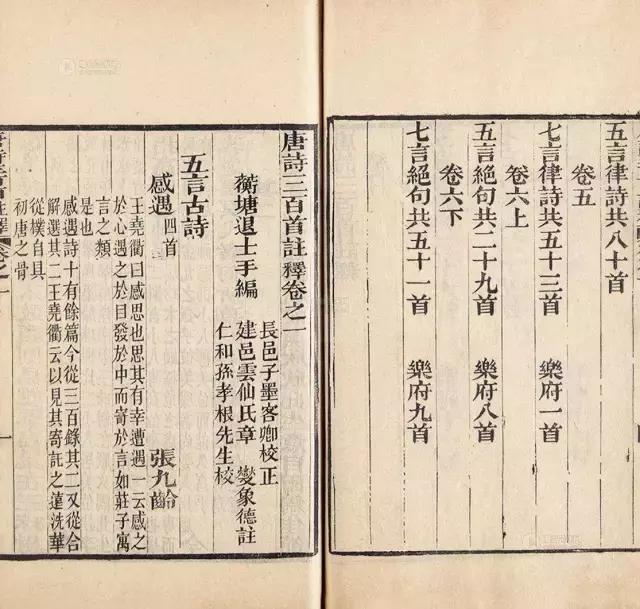 五言律詩共八十首
卷五
七言律詩共五十三首 樂府一首
卷六上
五言絕句共二十九首 樂府八首
卷六下
七言絕句共五十一首 樂府九首
唐詩三百首註釋卷之一
長邑子墨客卿校正
蘅塘退士手編 建邑雲仙氏章 燮象德註
仁和孫孝根先生校
五言古詩
感遇四首 張九齡
王堯衢曰感思也思其有幸遭遇一云感之
於心遇之於目發於中而寄於言如莊子寓
言之類
是也
感遇詩十有餘篇今從三百錄其二又從合
解選其二王堯衢云以見其寄託之遠洗華
從樸自具
初唐之骨